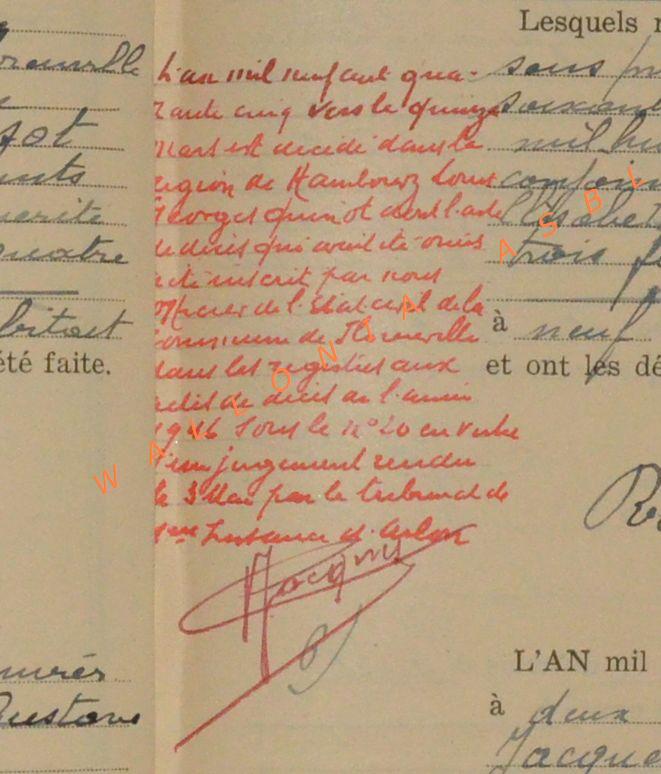 Lesquels
L'an mil neuf cent qua-
rante cinq vers le quinze
mars est décédé dans la
région de Hambourg Louis
Georges Quinot dont l'acte
de décès qui avait été omis
a été inscrit par nous
Officier de l'état civil de la
commune de Florenville
dans les registres aux
actes de décès de l'année
1946 sous le n° 20 en vertu
d'un jugement rendu
le 3 Mai par le tribunal de
1ère Instance d'Arlon
Jacques
WALLONIA ASBL
sous
mil hui
trois
à neuf
et ont les dé
été faite.
quatre
L'AN mil
à deux
Jacque
Gustave